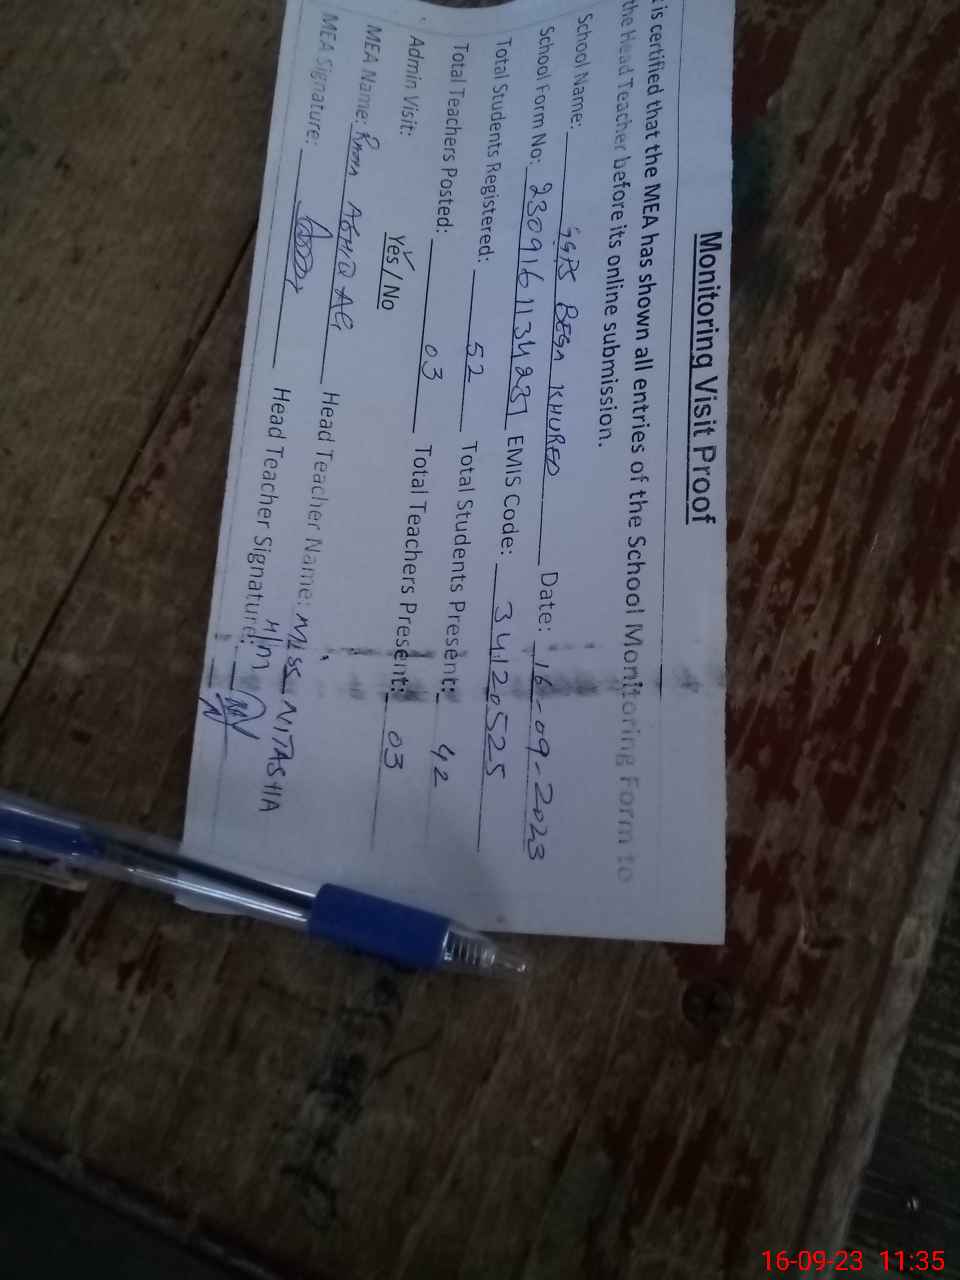 Monitoring Visit Proof
is certified that the MEA has shown all entries of the School Monitoring Form to
the Head Teacher before its online submission.
School Name: GGPS BEGA KHURED Date: 16-09-2023
School Form No: EMIS Code: 34120525
Total Students Registered: 52 Total Students Present: 42
Total Teachers Posted: 03 Total Teachers Present: 03
Admin Visit: Yes / No
MEA Name: Head Teacher Name: Miss NITASHA
MEA Signature: Head Teacher Signature:
H/M
16-09-23 11:35